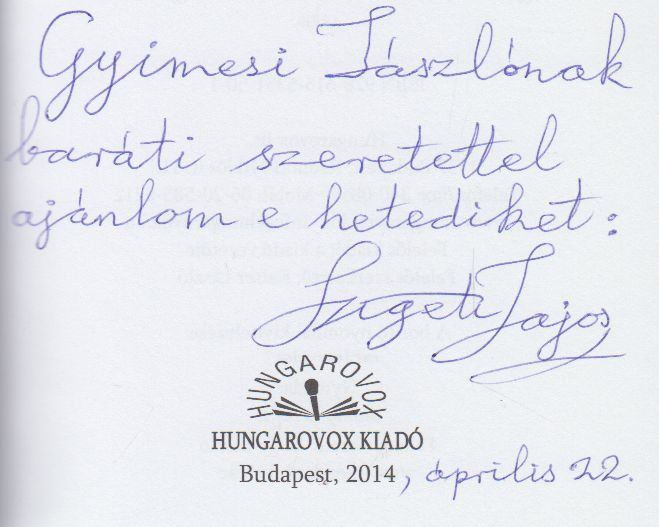 Gyimesi Lászlónak
baráti szeretettel
ajánlom e hetediket:
Szigeti Lajos
HUNGAROVOX
HUNGAROVOX KIADÓ
Budapest, 2014, április 22.